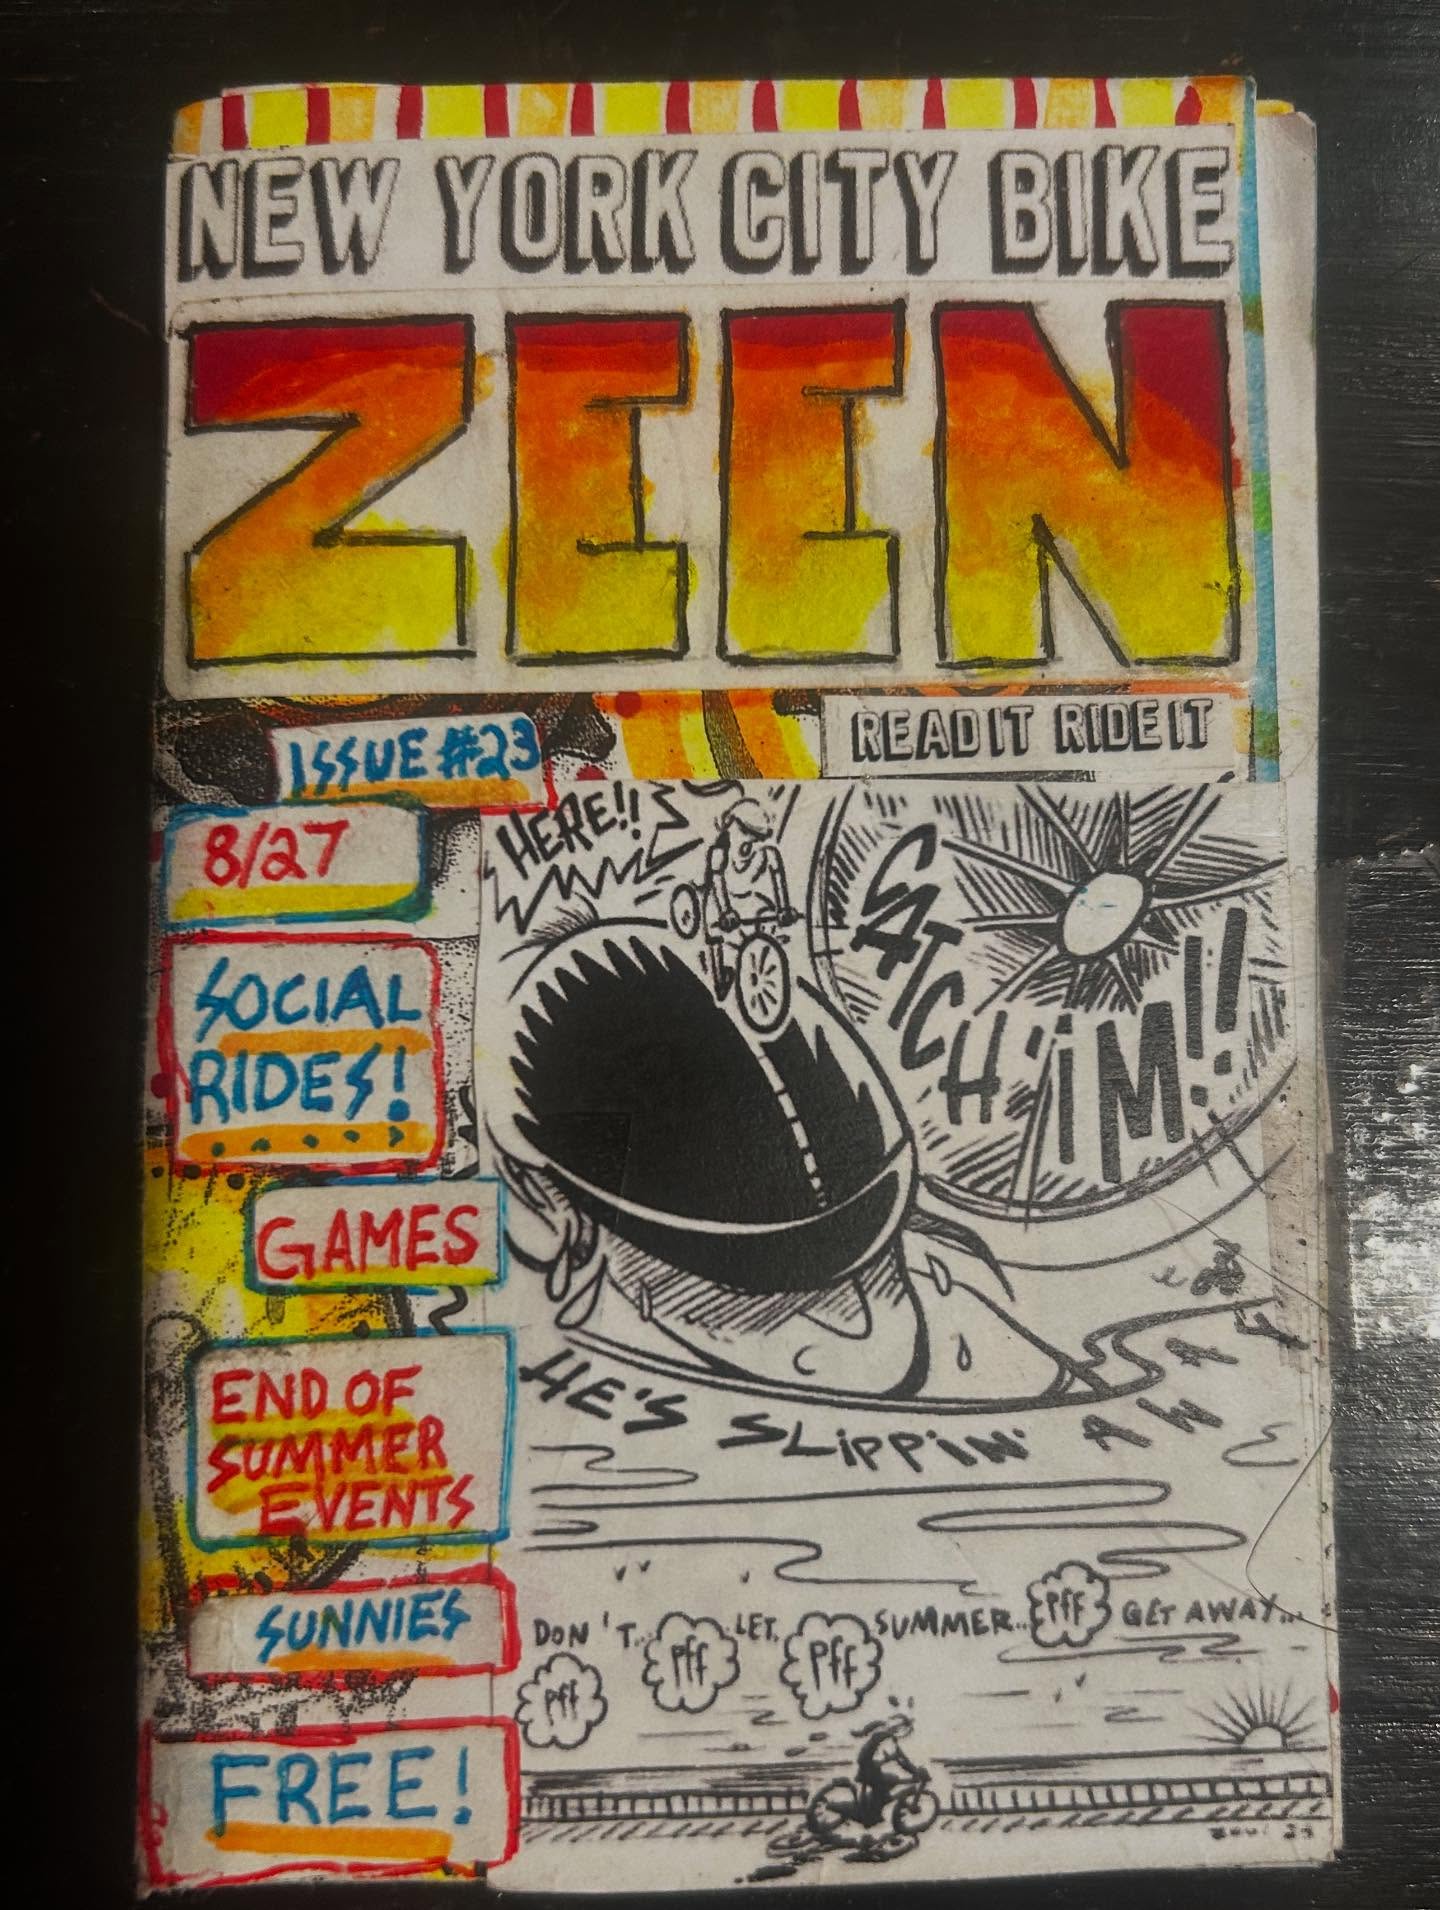 NEW YORK CITY BIKE
ZEEN
ISSUE #23
READ IT RIDE IT
8/27
SOCIAL
RIDES!
GAMES
END OF
SUMMER
EVENTS
SUNNIES
FREE!
HERE!!
CATCH 'iM!!
HE'S SLiPPiN' AWAY
DON'T... LET... SUMMER... GET AWAY...
Pff Pff Pff Pff